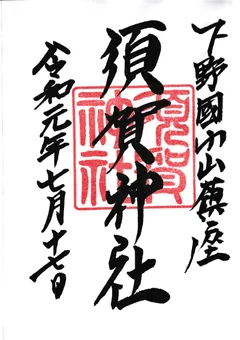 下野國小山鎮座
須賀神社
令和元年七月十七日
須賀
神社